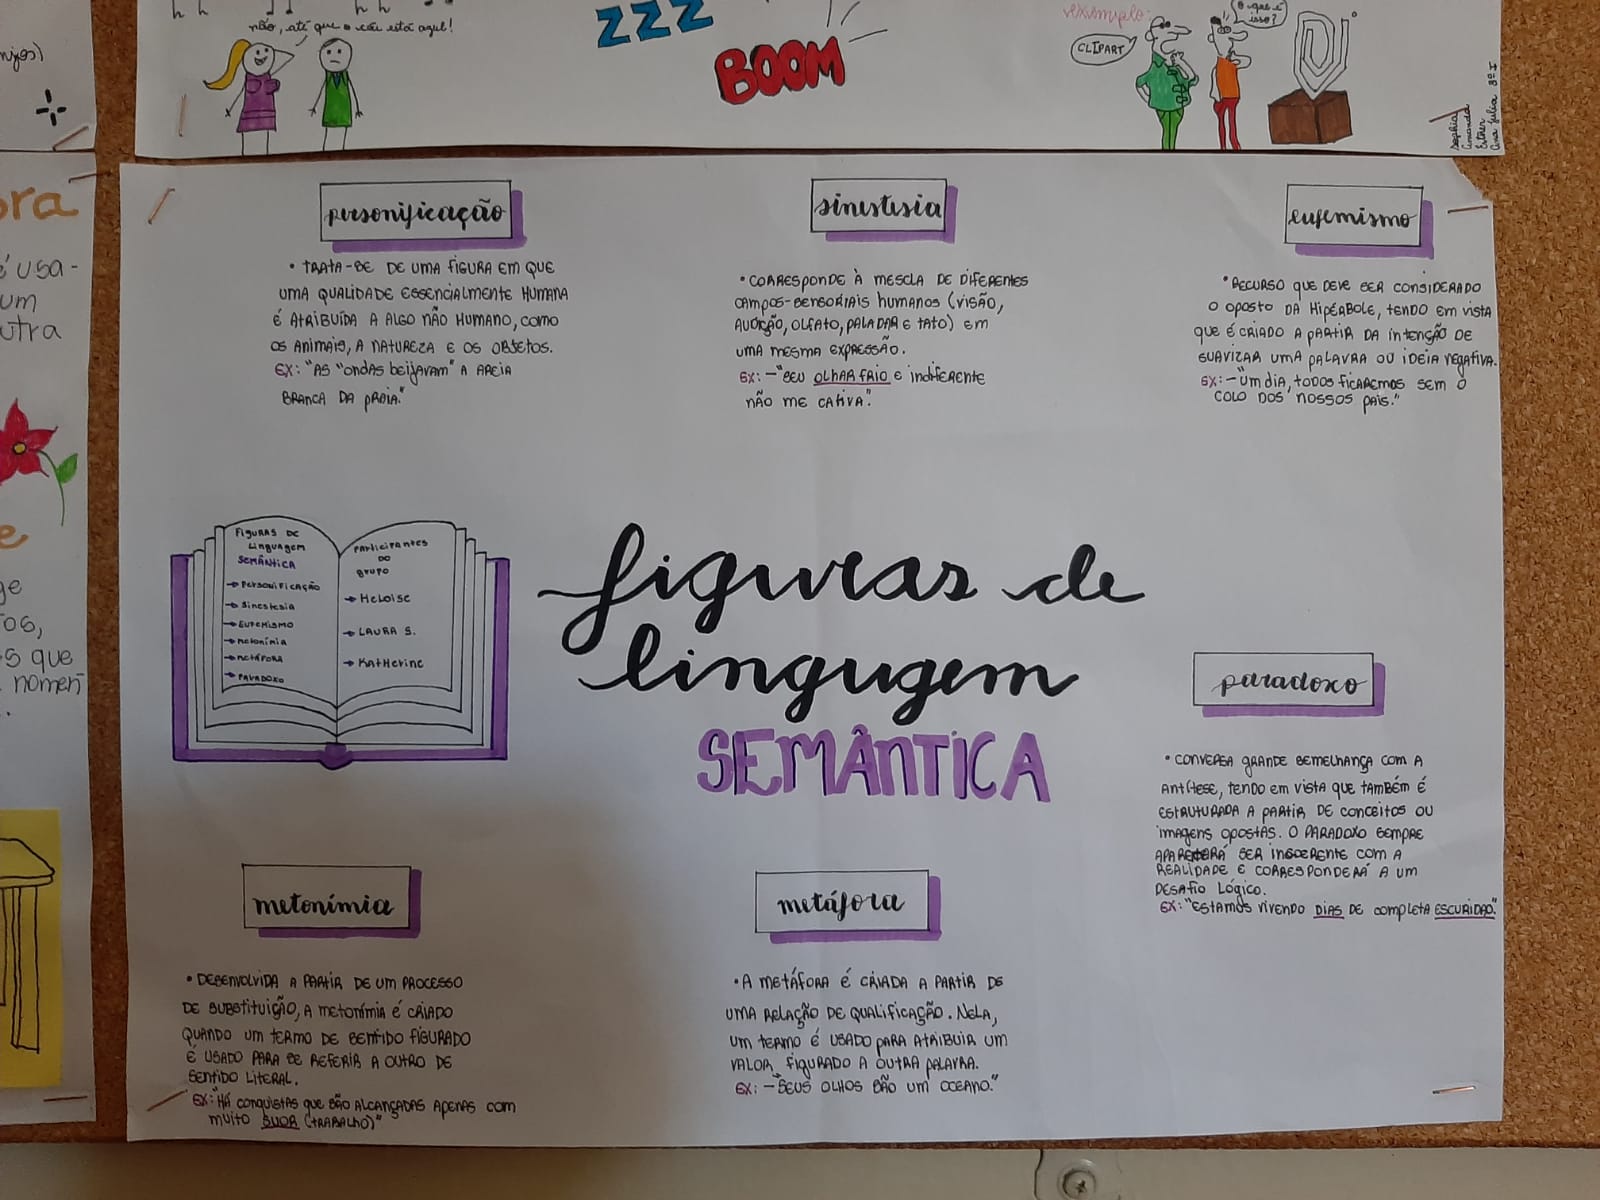 não, até que o céu está azul!
ZZZ
BOOM
exemplo:
CLIPART
o que é
isso?
Sophia
Amanda
Esther
Ana Julia 8º I
njos)
ora
é usa-
um
utra
e
ge
os,
s que
nomen
personificação
• TRATA-SE DE UMA FIGURA EM QUE
UMA QUALIDADE ESSENCIALMENTE HUMANA
É ATRIBUÍDA A ALGO NÃO HUMANO, COMO
OS ANIMAIS, A NATUREZA E OS OBJETOS.
EX: "AS "ONDAS BEIJAVAM" A AREIA
BRANCA DA PRAIA."
sinestesia
• CORRESPONDE À MESCLA DE DIFERENTES
CAMPOS-SENSORIAIS HUMANOS (VISÃO,
AUDIÇÃO, OLFATO, PALADAR E TATO) EM
UMA MESMA EXPRESSÃO.
EX: - "SEU OLHAR FRIO E INDIFERENTE
NÃO ME CATIVA".
eufemismo
• RECURSO QUE DEVE SER CONSIDERADO
O OPOSTO DA HIPÉRBOLE, TENDO EM VISTA
QUE É CRIADO A PARTIR DA INTENÇÃO DE
SUAVIZAR UMA PALAVRA OU IDEIA NEGATIVA.
EX: - "UM DIA, TODOS FICAREMOS SEM O
COLO DOS NOSSOS PAIS."
FIGURAS DE
LINGUAGEM
SEMÂNTICA
→ PERSONIFICAÇÃO
→ SINESTESIA
→ EUFEMISMO
→ METONÍMIA
→ METÁFORA
→ PARADOXO
PARTICIPANTES
DO
GRUPO
→ HELOISE
→ LAURA S.
→ KATHERINE
figuras de
lingugem
SEMÂNTICA
paradoxo
• CONVERSA GRANDE SEMELHANÇA COM A
ANTÍTESE, TENDO EM VISTA QUE TAMBÉM É
ESTRUTURADA A PARTIR DE CONCEITOS OU
IMAGENS OPOSTAS. O PARADOXO SEMPRE
APARETERÁ SER INCOERENTE COM A
REALIDADE E CORRESPONDERÁ A UM
DESAFIO LÓGICO.
EX: "ESTAMOS VIVENDO DIAS DE COMPLETA ESCURIDÃO".
metonímia
• DESENVOLVIDA A PARTIR DE UM PROCESSO
DE SUBSTITUIÇÃO, A METONÍMIA É CRIADO
QUANDO UM TERMO DE SENTIDO FIGURADO
É USADO PARA SE REFERIR A OUTRO DE
SENTIDO LITERAL.
EX: "HÁ CONQUISTAS QUE SÃO ALCANÇADAS APENAS COM
MUITO SUOR (TRABALHO)"
metáfora
• A METÁFORA É CRIADA A PARTIR DE
UMA RELAÇÃO DE QUALIFICAÇÃO. NELA,
UM TERMO É USADO PARA ATRIBUIR UM
VALOR FIGURADO A OUTRA PALAVRA.
EX: - "SEUS OLHOS SÃO UM OCEANO."